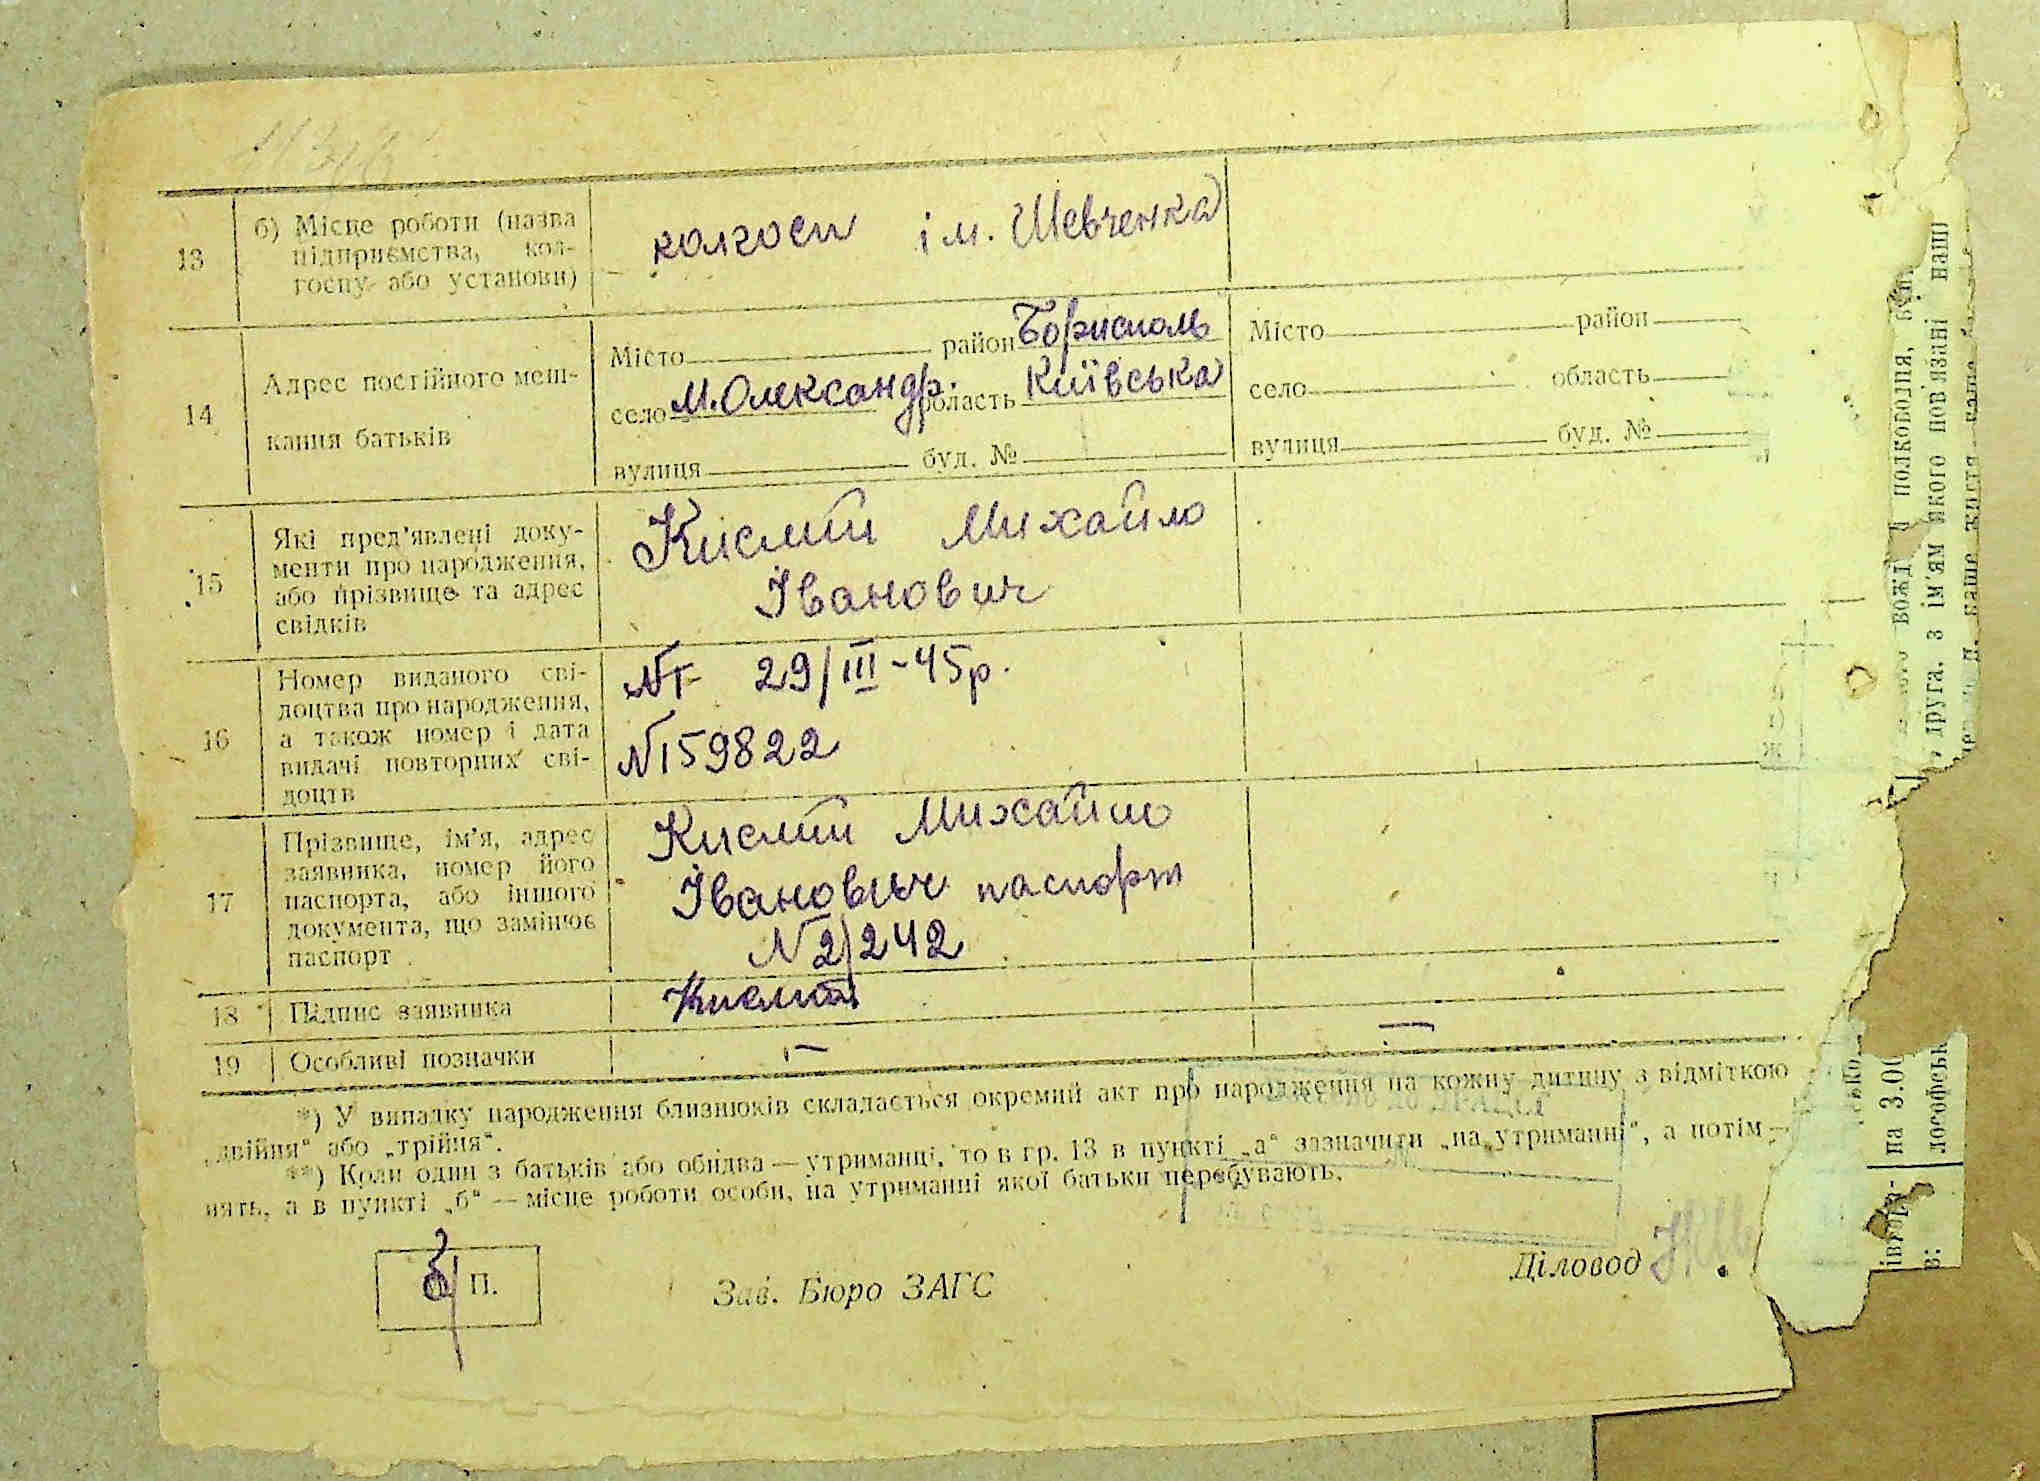 13
б) Місце роботи (назва
підприємства, кол-
госпу або установи)
колгосп ім. Шевченка
14
Адрес постійного меш-
кання батьків
Місто район Борисполь
село М.Олександр. область Київська
вулиця буд. №
Місто район
село область
вулиця буд. №
15
Які пред'явлені доку-
менти про народження,
або прізвище та адрес
свідків
Кислий Михайло
Іванович
16
Номер виданого сві-
доцтва про народження,
а також номер і дата
видачі повторних сві-
доцтв
29/III-45р.
N159822
17
Прізвище, ім'я, адрес
заявника, номер його
паспорта, або іншого
документа, що замінює
паспорт
Кислий Михайло
Іванович паспорт
N2/242
18 Підпис заявника
19 Особливі позначки
—
—
*) У випадку народження близнюків складається окремий акт про народження на кожну дитину з відміткою
„двійня“ або „трійня“.
**) Коли один з батьків або обидва — утриманці, то в гр. 13 в пункті „а“ зазначити „на утриманні“, а потім —
чить, а в пункті „б“ — місце роботи особи, на утриманні якої батьки перебувають.
П.
Зав. Бюро ЗАГС
Діловод
полководця,
друга, з ім'ям якого пов'язані наші
наше життя
на 3.00